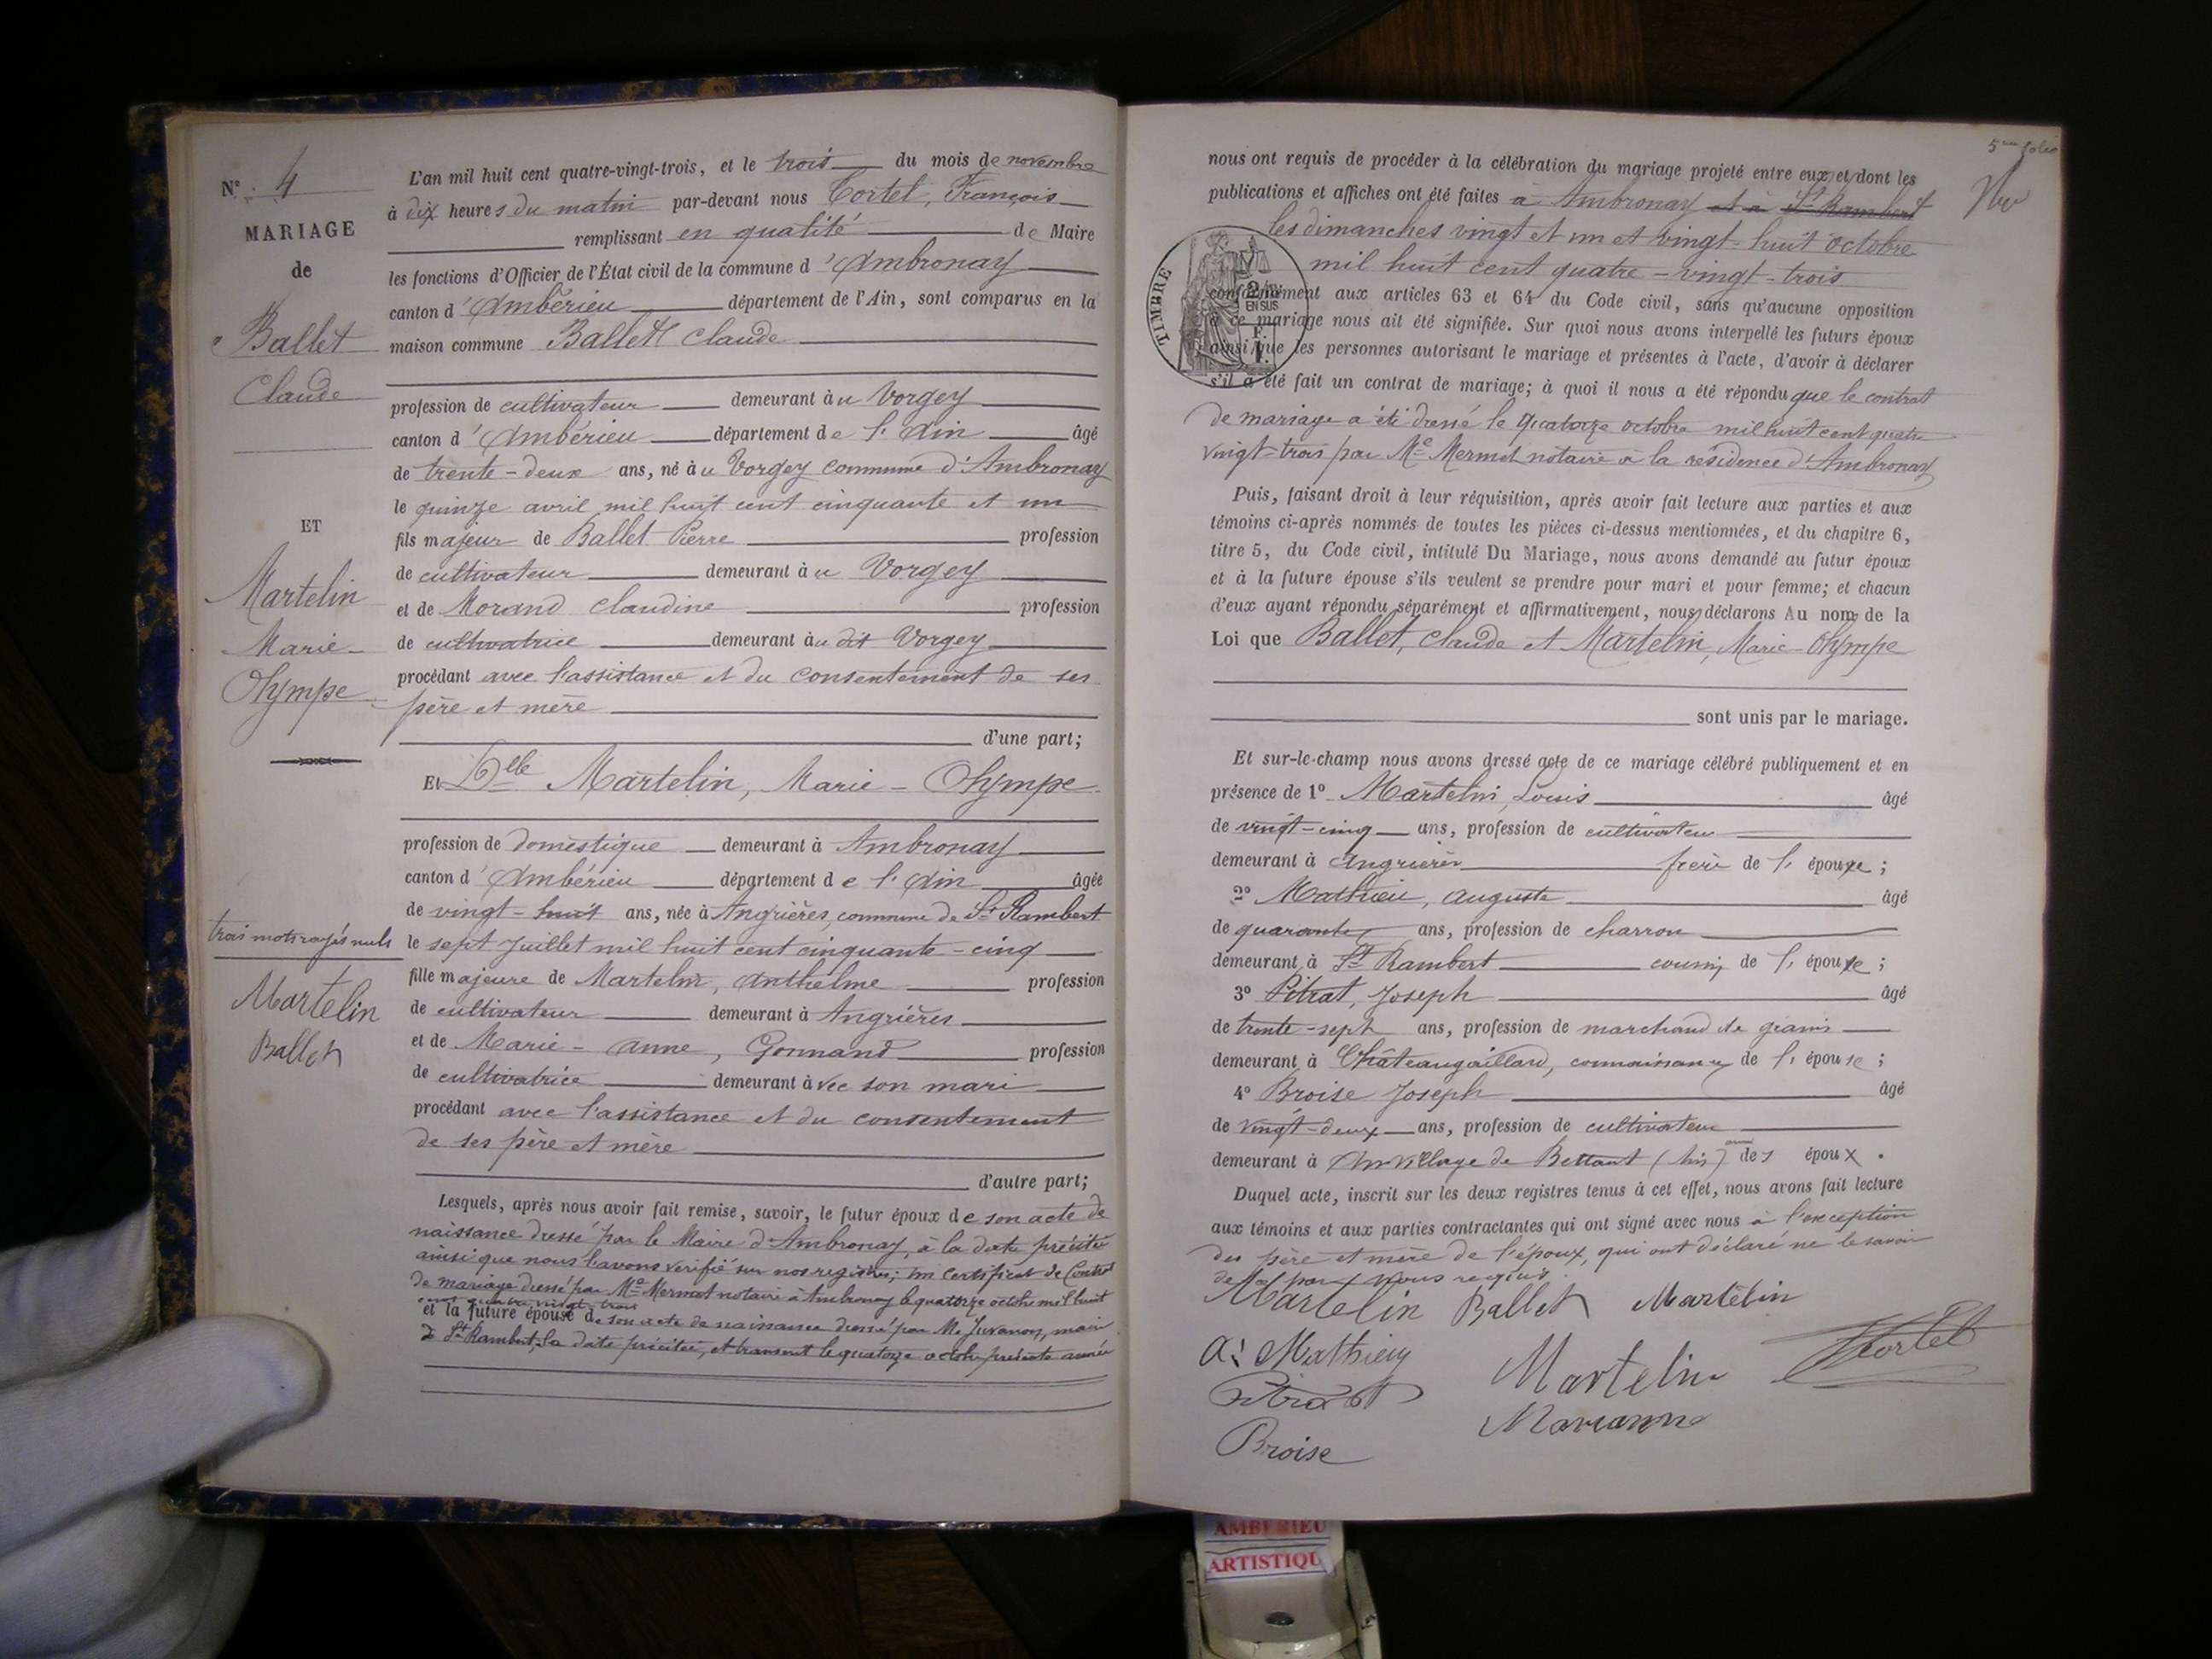 N° 4
MARIAGE
de
Ballet
Claude
ET
Martelin
Marie
Olympe
trois mots rayés nuls
Martelin
Ballet
L'an mil huit cent quatre-vingt-trois, et le trois du mois de novembre
à dix heures du matin par-devant nous Tortel, François
remplissant en qualité de Maire
les fonctions d'Officier de l'État civil de la commune d'Ambronay
canton d'Ambérieu département de l'Ain, sont comparus en la
maison commune Ballet Claude
profession de cultivateur demeurant àu Vorgey
canton d'Ambérieu département de l'Ain âgé
de trente-deux ans, né àu Vorgey commune d'Ambronay
le quinze avril mil huit cent cinquante et un
fils majeur de Ballet Pierre profession
de cultivateur demeurant àu Vorgey
et de Morand Claudine profession
de cultivatrice demeurant àu dit Vorgey
procédant avec l'assistance et du consentement de ses
père et mère
d'une part;
Et Dlle Martelin, Marie-Olympe
profession de domestique demeurant à Ambronay
canton d'Ambérieu département de l'Ain âgée
de vingt-huit ans, née à Angrières, commune de St Rambert
le sept Juillet mil huit cent cinquante-cinq
fille majeure de Martelin, Anthelme profession
de cultivateur demeurant à Angrières
et de Marie-anne, Gonnand profession
de cultivatrice demeurant àvec son mari
procédant avec l'assistance et du consentement
de ses père et mère
d'autre part;
Lesquels, après nous avoir fait remise, savoir, le futur époux de son acte de
naissance dressé par le Maire d'Ambronay, à la date précitée
ainsi que nous l'avons vérifié sur nos registres; un certificat de Contrat
de mariage dressé par Me Mermet notaire à Ambronay le quatorze octobre mil huit
cent quatre vingt-trois
et la future épouse de son acte de naissance dressé par Mr Juvanon, maire
de St Rambert, à la date précitée, et transmit le quatorze octobre présente année
5me folio
nous ont requis de procéder à la célébration du mariage projeté entre eux, et dont les
publications et affiches ont été faites à Ambronay et à St Rambert
les dimanches vingt et un et vingt-huit octobre
mil huit cent quatre-vingt-trois
TIMBRE
EN SUS
conformément aux articles 63 et 64 du Code civil, sans qu'aucune opposition
à ce mariage nous ait été signifiée. Sur quoi nous avons interpellé les futurs époux
ainsi que les personnes autorisant le mariage et présentes à l'acte, d'avoir à déclarer
s'il a été fait un contrat de mariage; à quoi il nous a été répondu que le contrat
de mariage a été dressé le quatorze octobre mil huit cent quatre
vingt-trois par Me Mermet notaire à la résidence d'Ambronay
Puis, faisant droit à leur réquisition, après avoir fait lecture aux parties et aux
témoins ci-après nommés de toutes les pièces ci-dessus mentionnées, et du chapitre 6,
titre 5, du Code civil, intitulé Du Mariage, nous avons demandé au futur époux
et à la future épouse s'ils veulent se prendre pour mari et pour femme; et chacun
d'eux ayant répondu séparément et affirmativement, nous déclarons Au nom de la
Loi que Ballet, Claude et Martelin, Marie-Olympe
sont unis par le mariage.
Et sur-le-champ nous avons dressé acte de ce mariage célébré publiquement et en
présence de 1° Martelin, Louis âgé
de vingt-cinq ans, profession de cultivateur
demeurant à Angrières frère de l'épouse;
2° Mathieu, Auguste âgé
de quarante ans, profession de charron
demeurant à St Rambert cousin de l'épouse;
3° Pitrat, Joseph âgé
de trente-sept ans, profession de marchand de grains
demeurant à Châteaugaillard, connaissance de l'épouse;
4° Broise Joseph âgé
de vingt-deux ans, profession de cultivateur
demeurant à Au village de Bettant (Ain) ami des époux.
Duquel acte, inscrit sur les deux registres tenus à cet effet, nous avons fait lecture
aux témoins et aux parties contractantes qui ont signé avec nous à l'exception
des père et mère de l'époux, qui ont déclaré ne le savoir
de ce par nous requis
Martelin Ballet Martelin
A. Mathieu
Martelin
Tortel
Pitrat
Marianne
Broise
AMBERIEU
ARTISTIQU